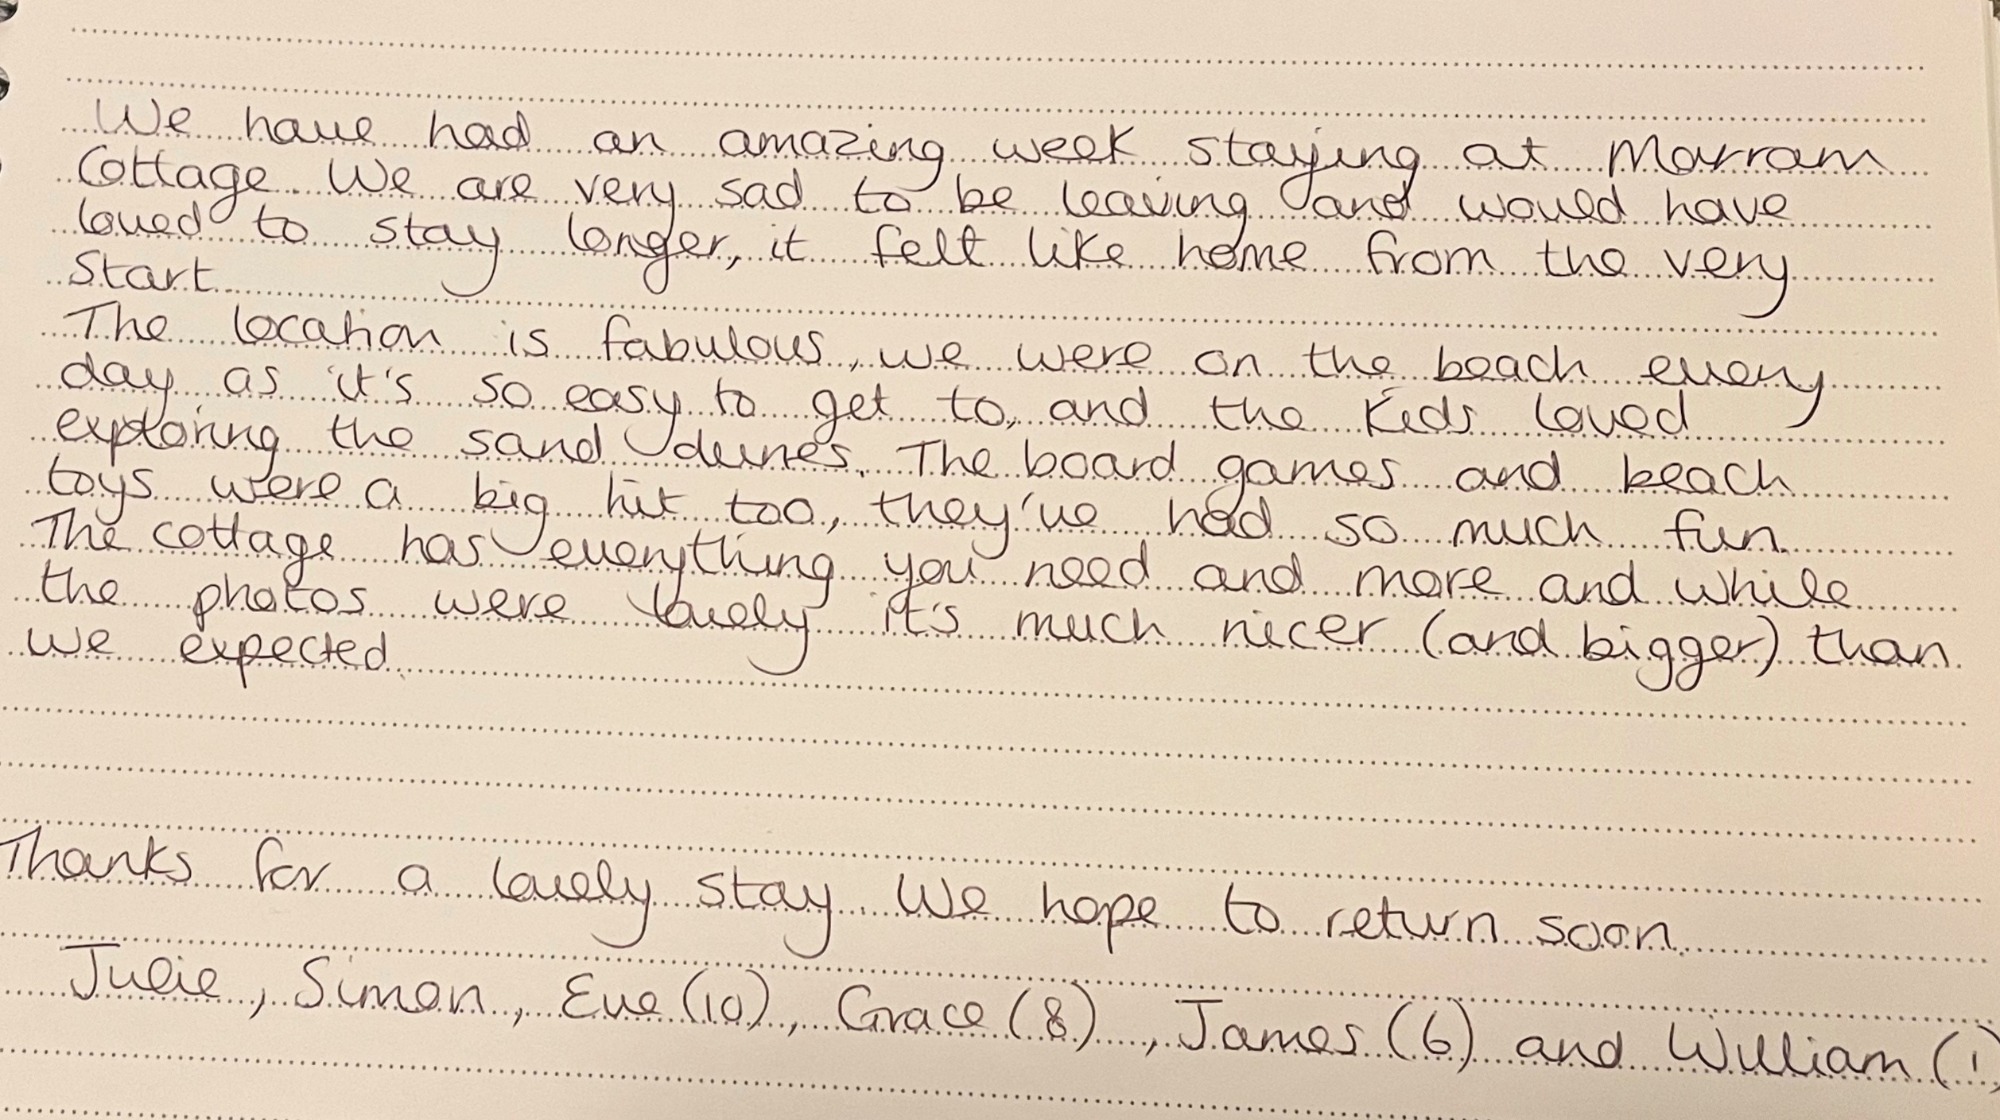 We have had an amazing week staying at Marram
Cottage. We are very sad to be leaving and would have
loved to stay longer, it felt like home from the very
Start.
The location is fabulous, we were on the beach every
day as it's so easy to get to, and the kids loved
exploring the sand dunes. The board games and beach
toys were a big hit too, they've had so much fun.
The cottage has everything you need and more and while
the photos were lovely it's much nicer (and bigger) than
we expected.
Thanks for a lovely stay. We hope to return soon.
Julie, Simon, Eve (10), Grace (8), James (6) and William (1)